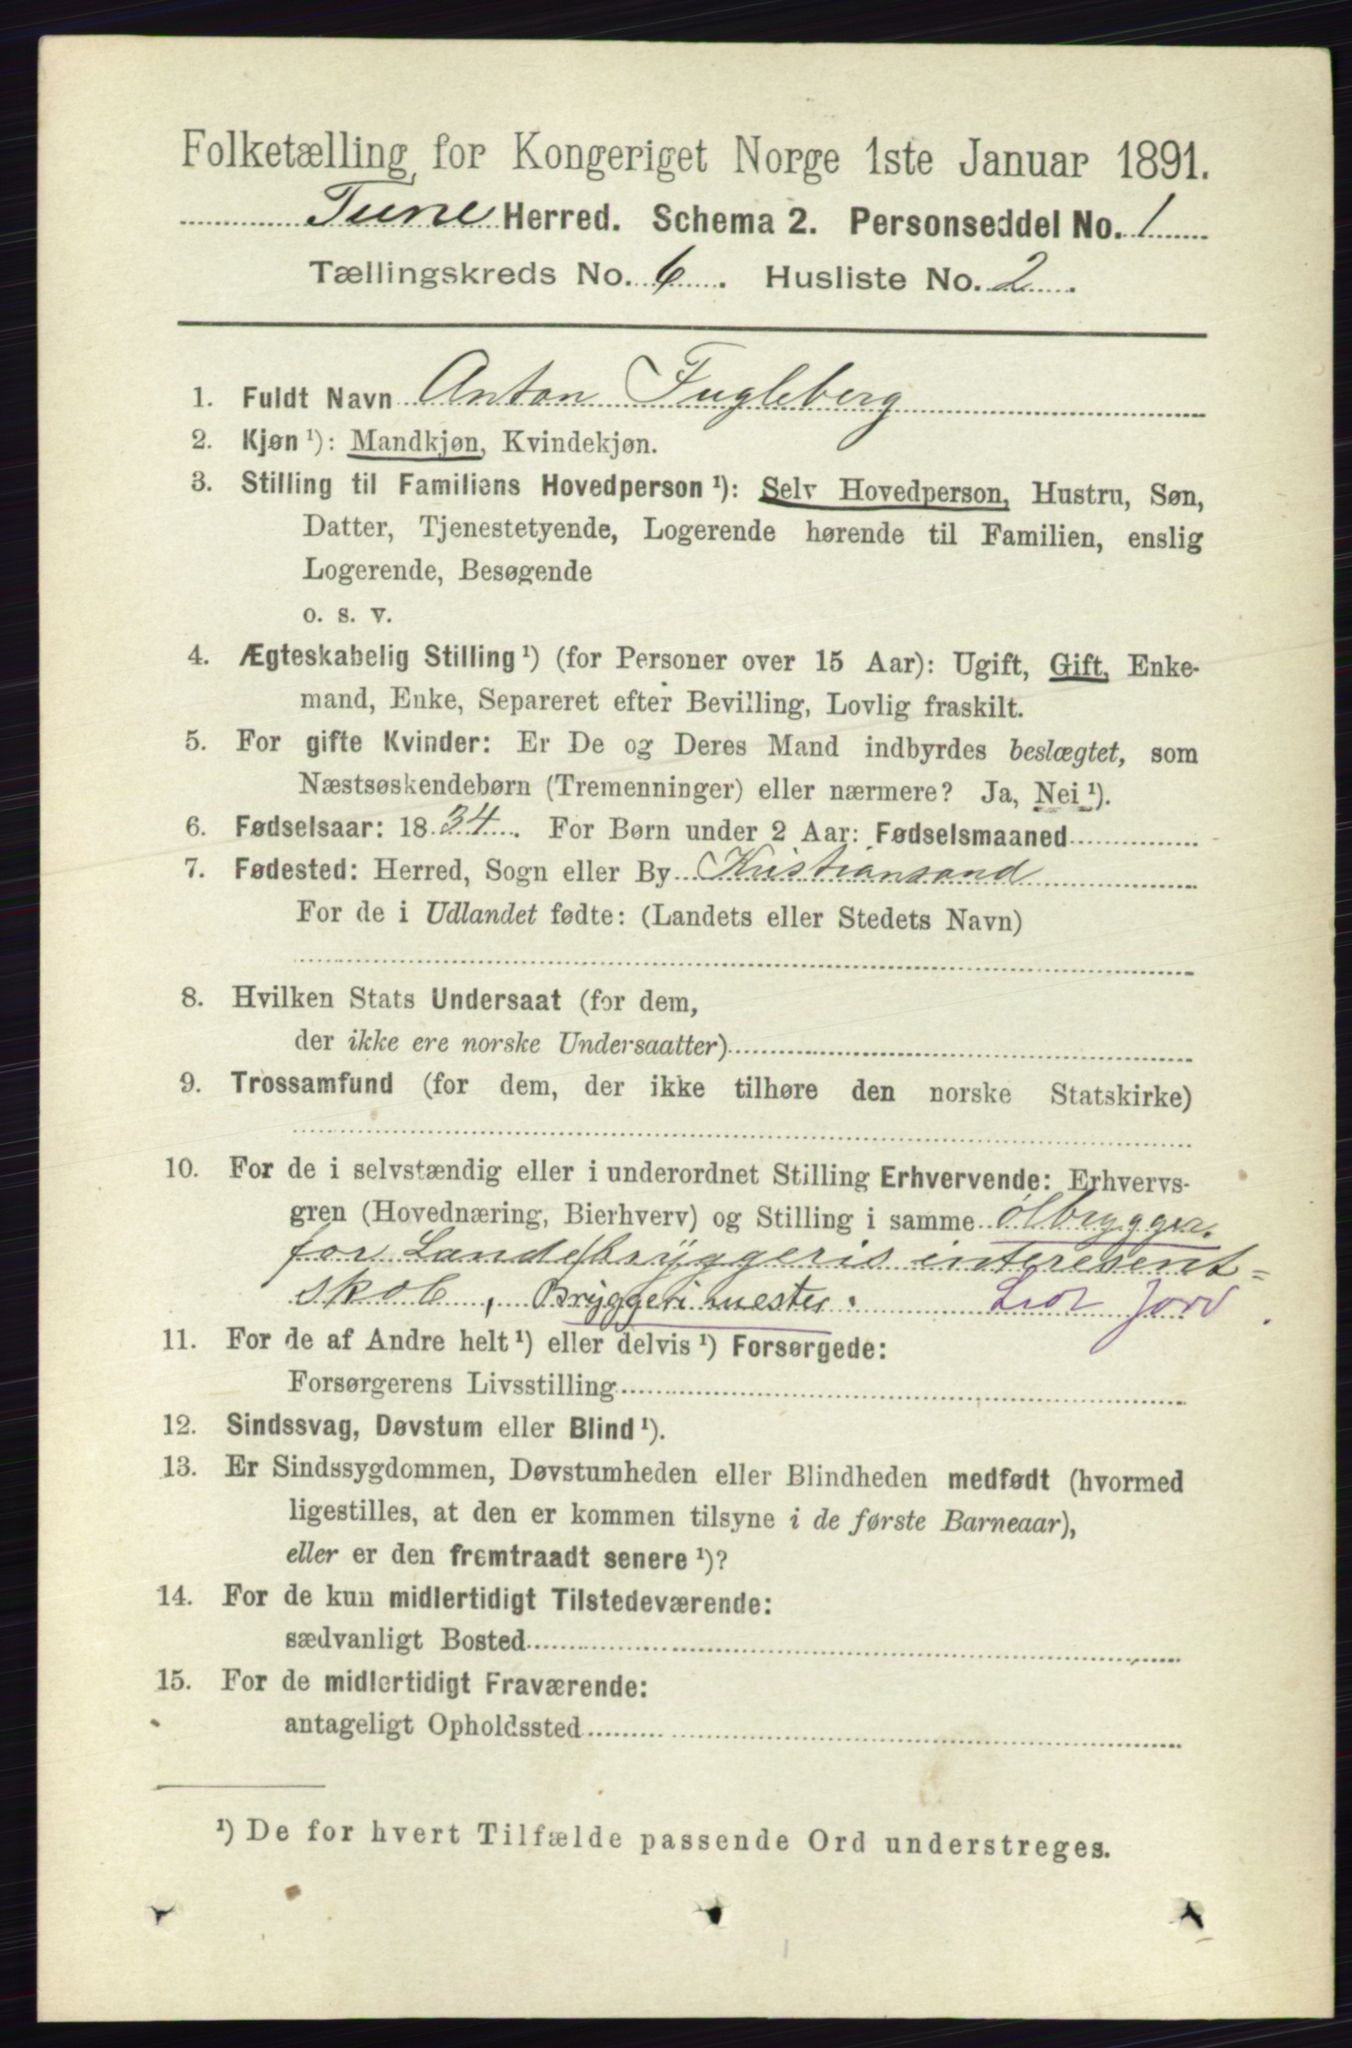 Folketælling for Kongeriget Norge 1ste Januar 1891.
Tune Herred. Schema 2. Personseddel No. 1
Tællingskreds No. 6. Husliste No. 2.
1. Fuldt Navn Anton Fugleberg
2. Kjøn ¹): Mandkjøn, Kvindekjøn.
3. Stilling til Familiens Hovedperson ¹): Selv Hovedperson, Hustru, Søn,
Datter, Tjenestetyende, Logerende hørende til Familien, enslig
Logerende, Besøgende
o. s. v.
4. Ægteskabelig Stilling ¹) (for Personer over 15 Aar): Ugift, Gift, Enke-
mand, Enke, Separeret efter Bevilling, Lovlig fraskilt.
5. For gifte Kvinder: Er De og Deres Mand indbyrdes beslægtet, som
Næstsøskendebørn (Tremenninger) eller nærmere? Ja, Nei ¹).
6. Fødselsaar: 1834. For Børn under 2 Aar: Fødselsmaaned
7. Fødested: Herred, Sogn eller By Kristiansand
For de i Udlandet fødte: (Landets eller Stedets Navn)
8. Hvilken Stats Undersaat (for dem,
der ikke ere norske Undersaatter)
9. Trossamfund (for dem, der ikke tilhøre den norske Statskirke)
10. For de i selvstændig eller i underordnet Stilling Erhvervende: Erhvervs-
gren (Hovednæring, Bierhverv) og Stilling i samme ølbrygger.
for Lande bryggeris interesent=
skab, Bryggerimester. Jord
11. For de af Andre helt ¹) eller delvis ¹) Forsørgede:
Forsørgerens Livsstilling
12. Sindssvag, Døvstum eller Blind ¹).
13. Er Sindssygdommen, Døvstumheden eller Blindheden medfødt (hvormed
ligestilles, at den er kommen tilsyne i de første Barneaar),
eller er den fremtraadt senere ¹)?
14. For de kun midlertidigt Tilstedeværende:
sædvanligt Bosted
15. For de midlertidigt Fraværende:
antageligt Opholdssted
¹) De for hvert Tilfælde passende Ord understreges.